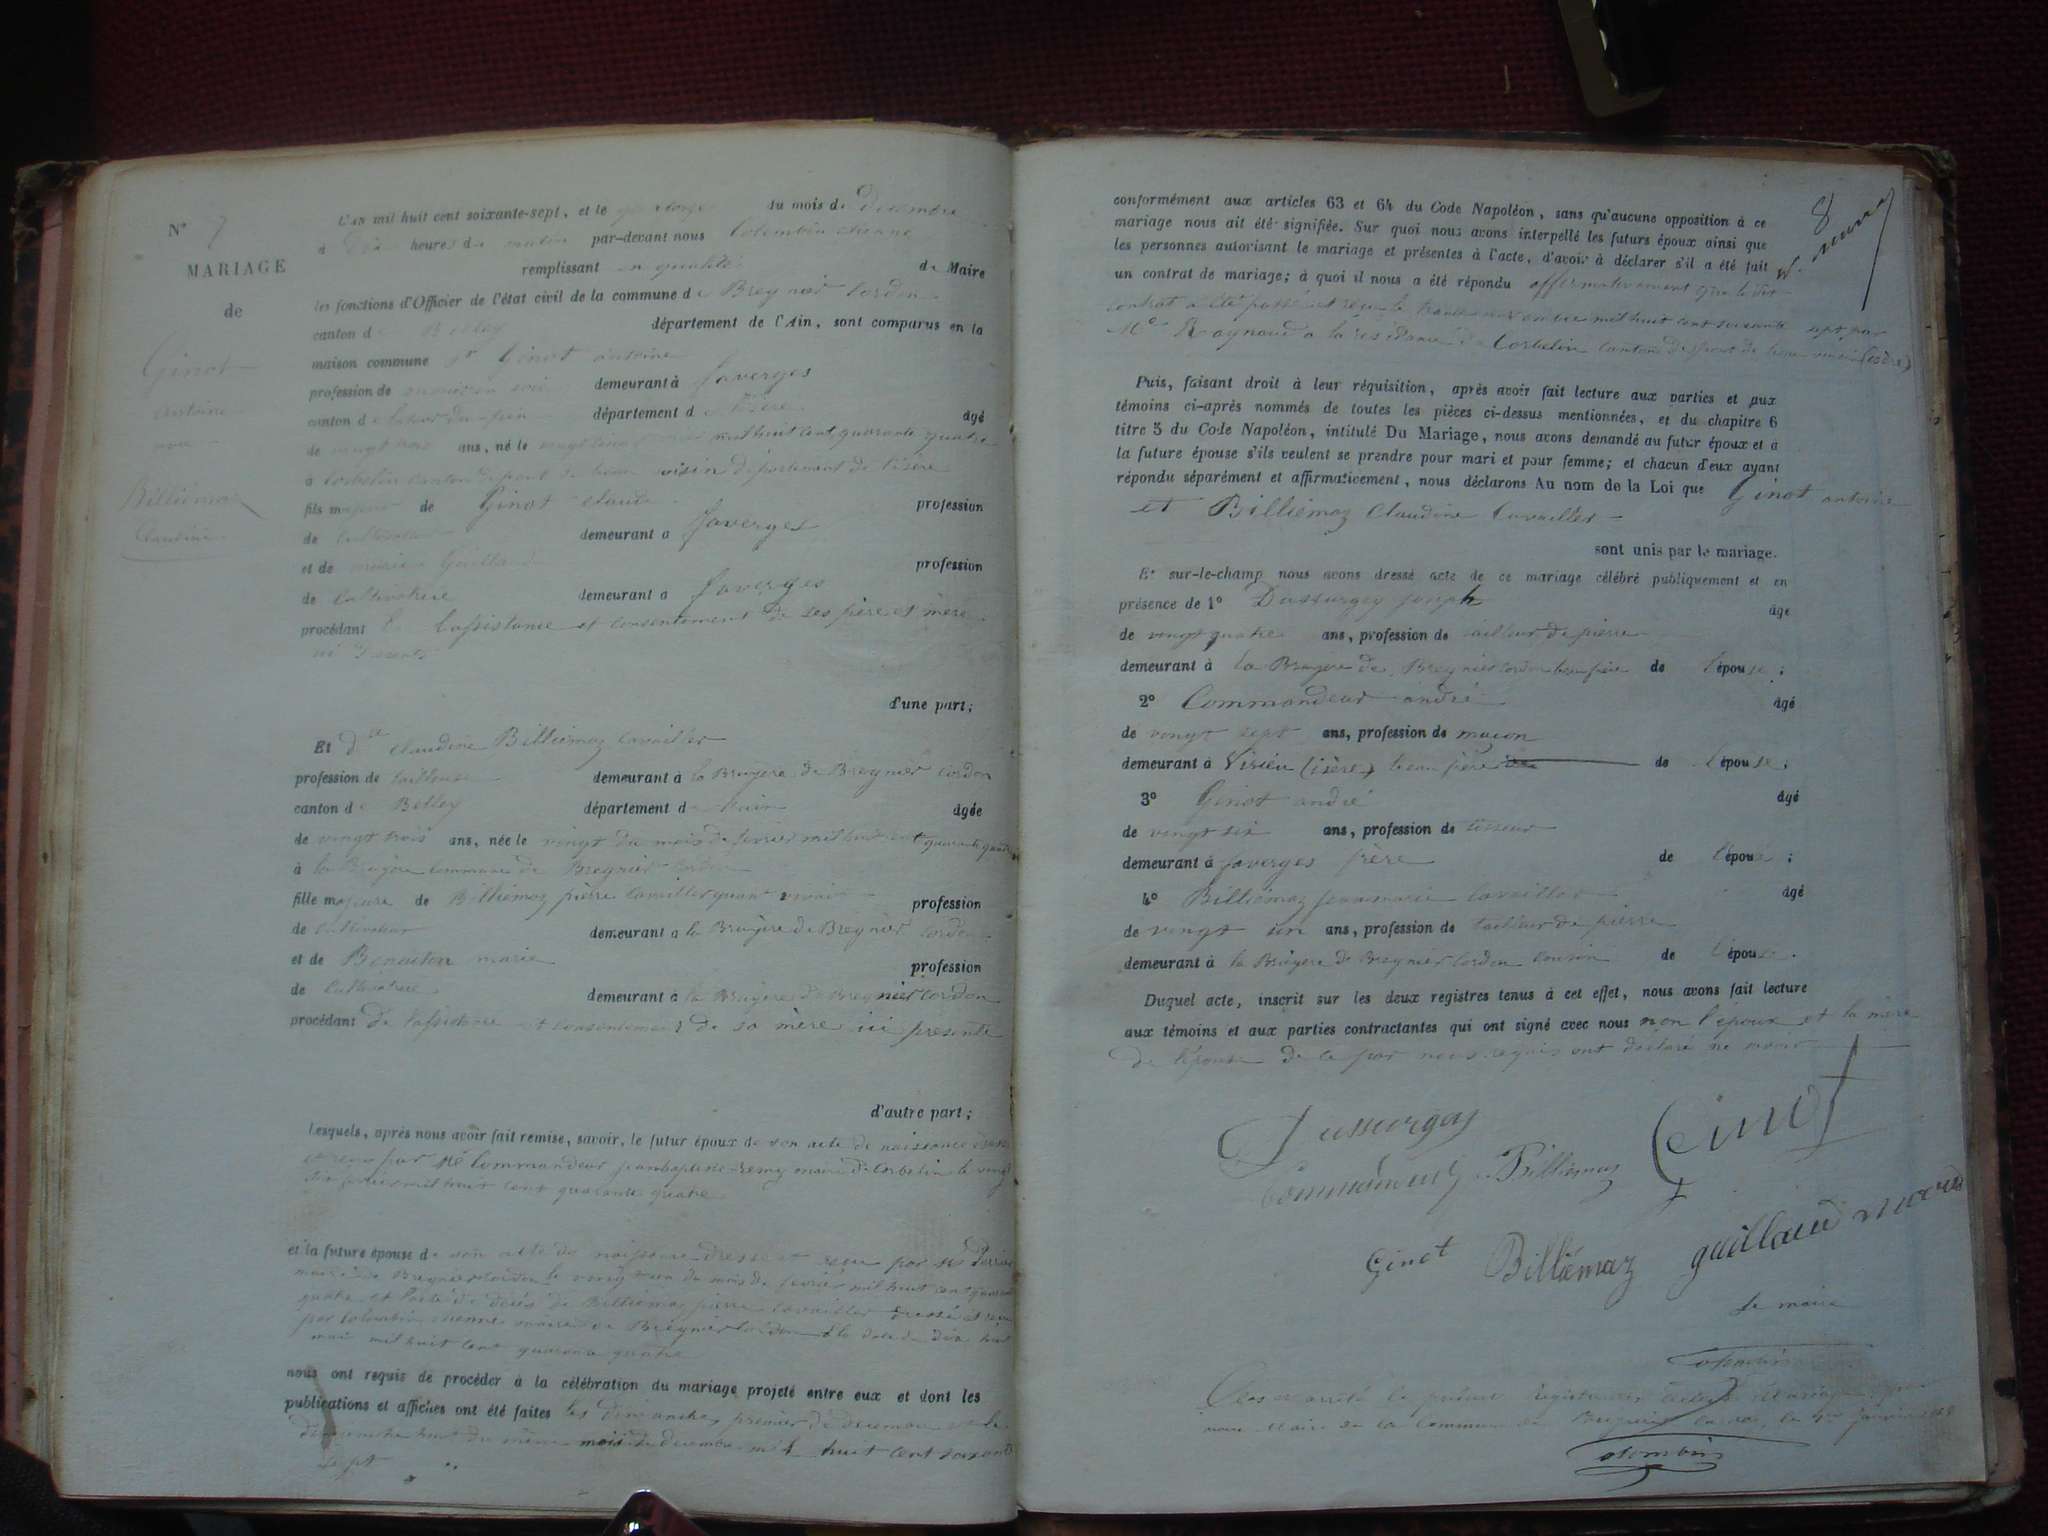 N° 7
MARIAGE
de
Ginot
antoine
avec
Billiémaz
Claudine
L'AN mil huit cent soixante-sept, et le quatorze du mois de décembre
à dix heures du matin par-devant nous Colombin etienne
remplissant en qualité de Maire
les fonctions d'Officier de l'état civil de la commune de Bregnier Cordon
canton de Belley département de l'Ain, sont comparus en la
maison commune sr Ginot antoine
profession de demeurant à faverges
canton de latour du pin département de l'isère âgé
de vingt trois ans, né le vingt cinq mil huit cent quarante quatre
à Corbelin canton de pont de beau voisin département de l'isère
fils majeur de Ginot Claude profession
de cultivateur demeurant a faverges
et de marie Guilland profession
de cultivatrice demeurant a faverges
procédant de l'assistance et consentement de ses père et mère
ici présents
d'une part;
Et dlle Claudine Billiémaz Cavailler
profession de tailleuse demeurant à la Bruyère de Bregnier Cordon
canton de Belley département de l'ain âgée
de vingt trois ans, née le vingt du mois de fevrier mil huit cent quarante quatre
à la Bruyère commune de Bregnier Cordon
fille majeure de Billiémaz pierre Cavailler quant vivait profession
de cultivateur demeurant a la Bruyère de Bregnier Cordon
et de Benoiton marie profession
de cultivatrice demeurant à la Bruyère de Bregnier Cordon
procédant de l'assistance et consentement de sa mère ici présente
d'autre part;
Lesquels, après nous avoir fait remise, savoir, le futur époux de son acte de naissance dressé
et reçu par Mr Commandeur jeanbaptiste remy maire de Corbelin le vingt
six mil huit cent quarante quatre
et la future épouse de son acte de naissance dressé et reçu par Mr
maire de Bregnier Cordon le vingt un du mois de fevrier mil huit cent quarante
quatre et l'acte de décès de Billiémaz pierre Cavailler dressé et reçu
par Colombin etienne maire de Bregnier Cordon à la date du dix huit
mai mil huit cent quarante quatre
nous ont requis de procéder à la célébration du mariage projeté entre eux et dont les
publications et affiches ont été faites les dimanches premier de decembre et le
dimanche huit du même mois de decembre mil huit cent soixante
sept
8
conformément aux articles 63 et 64 du Code Napoléon, sans qu'aucune opposition à ce
mariage nous ait été signifiée. Sur quoi nous avons interpellé les futurs époux ainsi que
les personnes autorisant le mariage et présentes à l'acte, d'avoir à déclarer s'il a été fait
un contrat de mariage; à quoi il nous a été répondu affirmativement que le dit
contrat a été passé et reçu le trente novembre mil huit cent soixante sept par
Me Raynaud a la résidence de Corbelin canton de pont de beau voisin (isère)
Puis, faisant droit à leur réquisition, après avoir fait lecture aux parties et aux
témoins ci-après nommés de toutes les pièces ci-dessus mentionnées, et du chapitre 6
titre 5 du Code Napoléon, intitulé Du Mariage, nous avons demandé au futur époux et a
la future épouse s'ils veulent se prendre pour mari et pour femme; et chacun d'eux ayant
répondu séparément et affirmativement, nous déclarons Au nom de la Loi que Ginot antoine
et Billiémaz Claudine Cavailler
sont unis par le mariage.
Et sur-le-champ nous avons dressé acte de ce mariage célébré publiquement et en
présence de 1° Dussurgey joseph âgé
de vingt quatre ans, profession de tailleur de pierre
demeurant à la Bruyère de Bregnier Cordon beau frère de l'épouse;
2° Commandeur andré âgé
de vingt sept ans, profession de maçon
demeurant à Virieu (isère) beau frère de l'épouse;
3° Ginot andré âgé
de vingt six ans, profession de tisseur
demeurant à faverges frère de l'époux;
4° Billiémaz jeanmarie Cavailler âgé
de vingt un ans, profession de tailleur de pierre
demeurant à la Bruyère de Bregnier Cordon cousin de l'épouse.
Duquel acte, inscrit sur les deux registres tenus à cet effet, nous avons fait lecture
aux témoins et aux parties contractantes qui ont signé avec nous non l'époux et la mère
de l'épouse de ce par nous requis ont déclaré ne savoir
Dussurgey
Ginot
Commandeur
Billiemaz
Ginot
Billiémaz
guilland marie
le maire
Colombin
Clos et arrêté le présent registre des actes de mariage par
nous Maire de la Commune de Bregnier Cordon, le 1er janvier 1868
Colombin